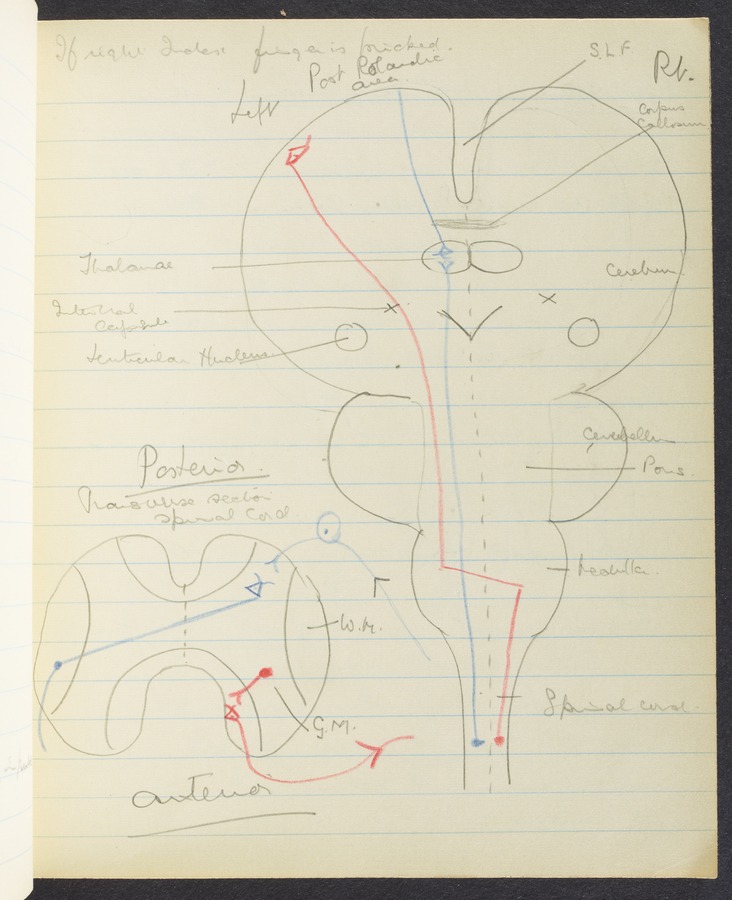 If right Index finger is pricked.
Post Rolandic
area.
S.L.F.
Rt.
Left
Corpus
Callosum
Thalamae
Cerebrum
Internal
Capsule
Lenticular Nucleus
Cerebellum
Posterior.
Pons.
Transverse section
spinal Cord
Medulla.
W.M.
Spinal cord.
G.M.
anterior